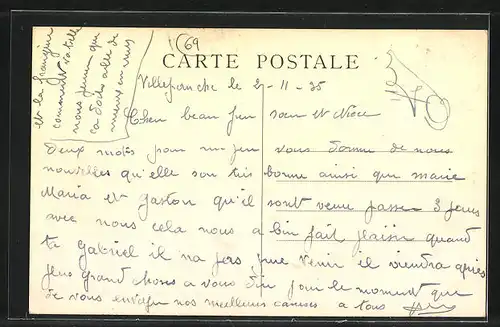 69
CARTE POSTALE
et la frangine
comment va t elle
nous pensons que
ça doit aller de
mieux en mieux
Villefranche le 2-11-35
Cher beau frere soeur et Niece
Deux mots pour vous donner de nous
nouvelles qu'elle son tres bonne ainsi que marie
Maria et Gaston qu'il sont venu passer 3 jours
avec nous cela nous a bien fait plaisir quand
ta Gabriel il na pas pue venir il viendra après
grand choses a vous dir pour le moment que
de vous envoyer nos meilleurs caresses a tous